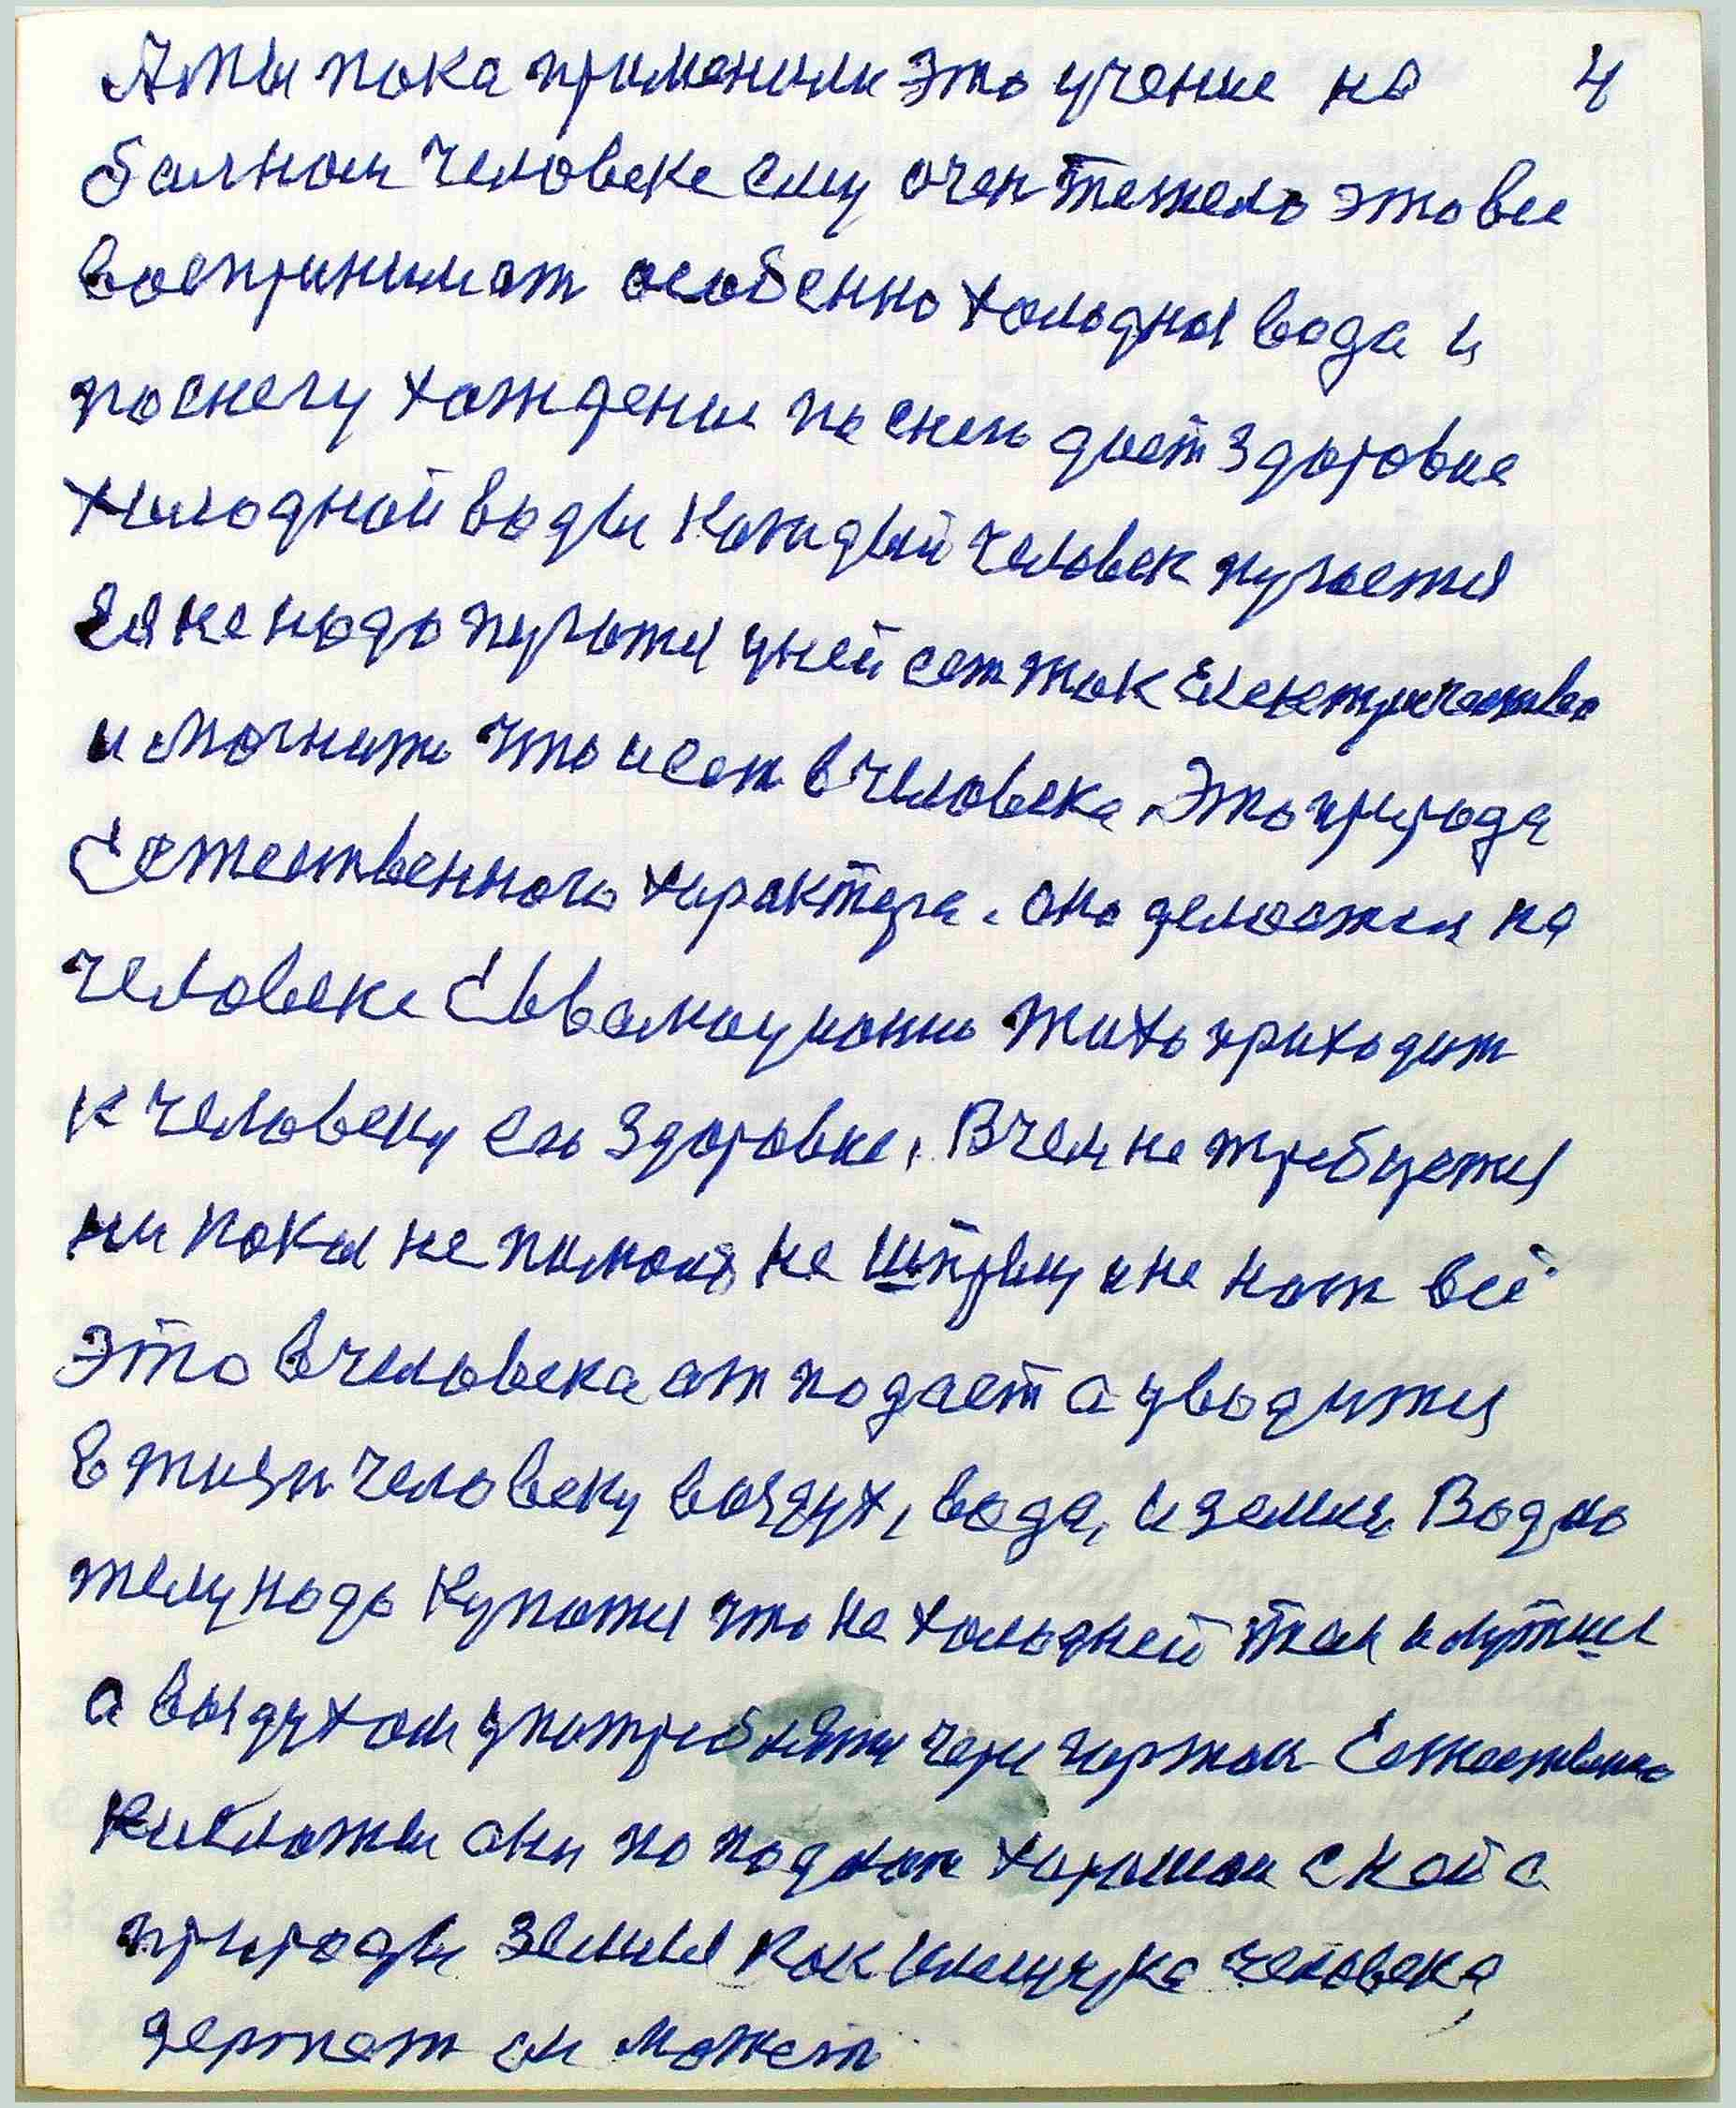 А мы пока применили это учение на 4
балном человеке ему очен тежело это все
воспринимат особенно холодная вода и
по снегу хождение по снегу дает здоровие
холодной воды каждый человек пугается
Ея не надо пугатся у ней сет ток Електричество
и могнит что и ест в человека. Это природа
Естественного характера. она делается на
человеке Евволюционно тихо приходит
к человеку его здоровие. В чем не требуется
ни какая не пилюля, не шприц и не нож всё
это в человека отподает а уводится
в жизн человеку воздух, вода, и земля. Водно
телу надо купатся что не холодней тем и лутше
а воздухом употреблятся через гортан Естествено
они хорошая с кой с
природы Земля как человека
держат ои может